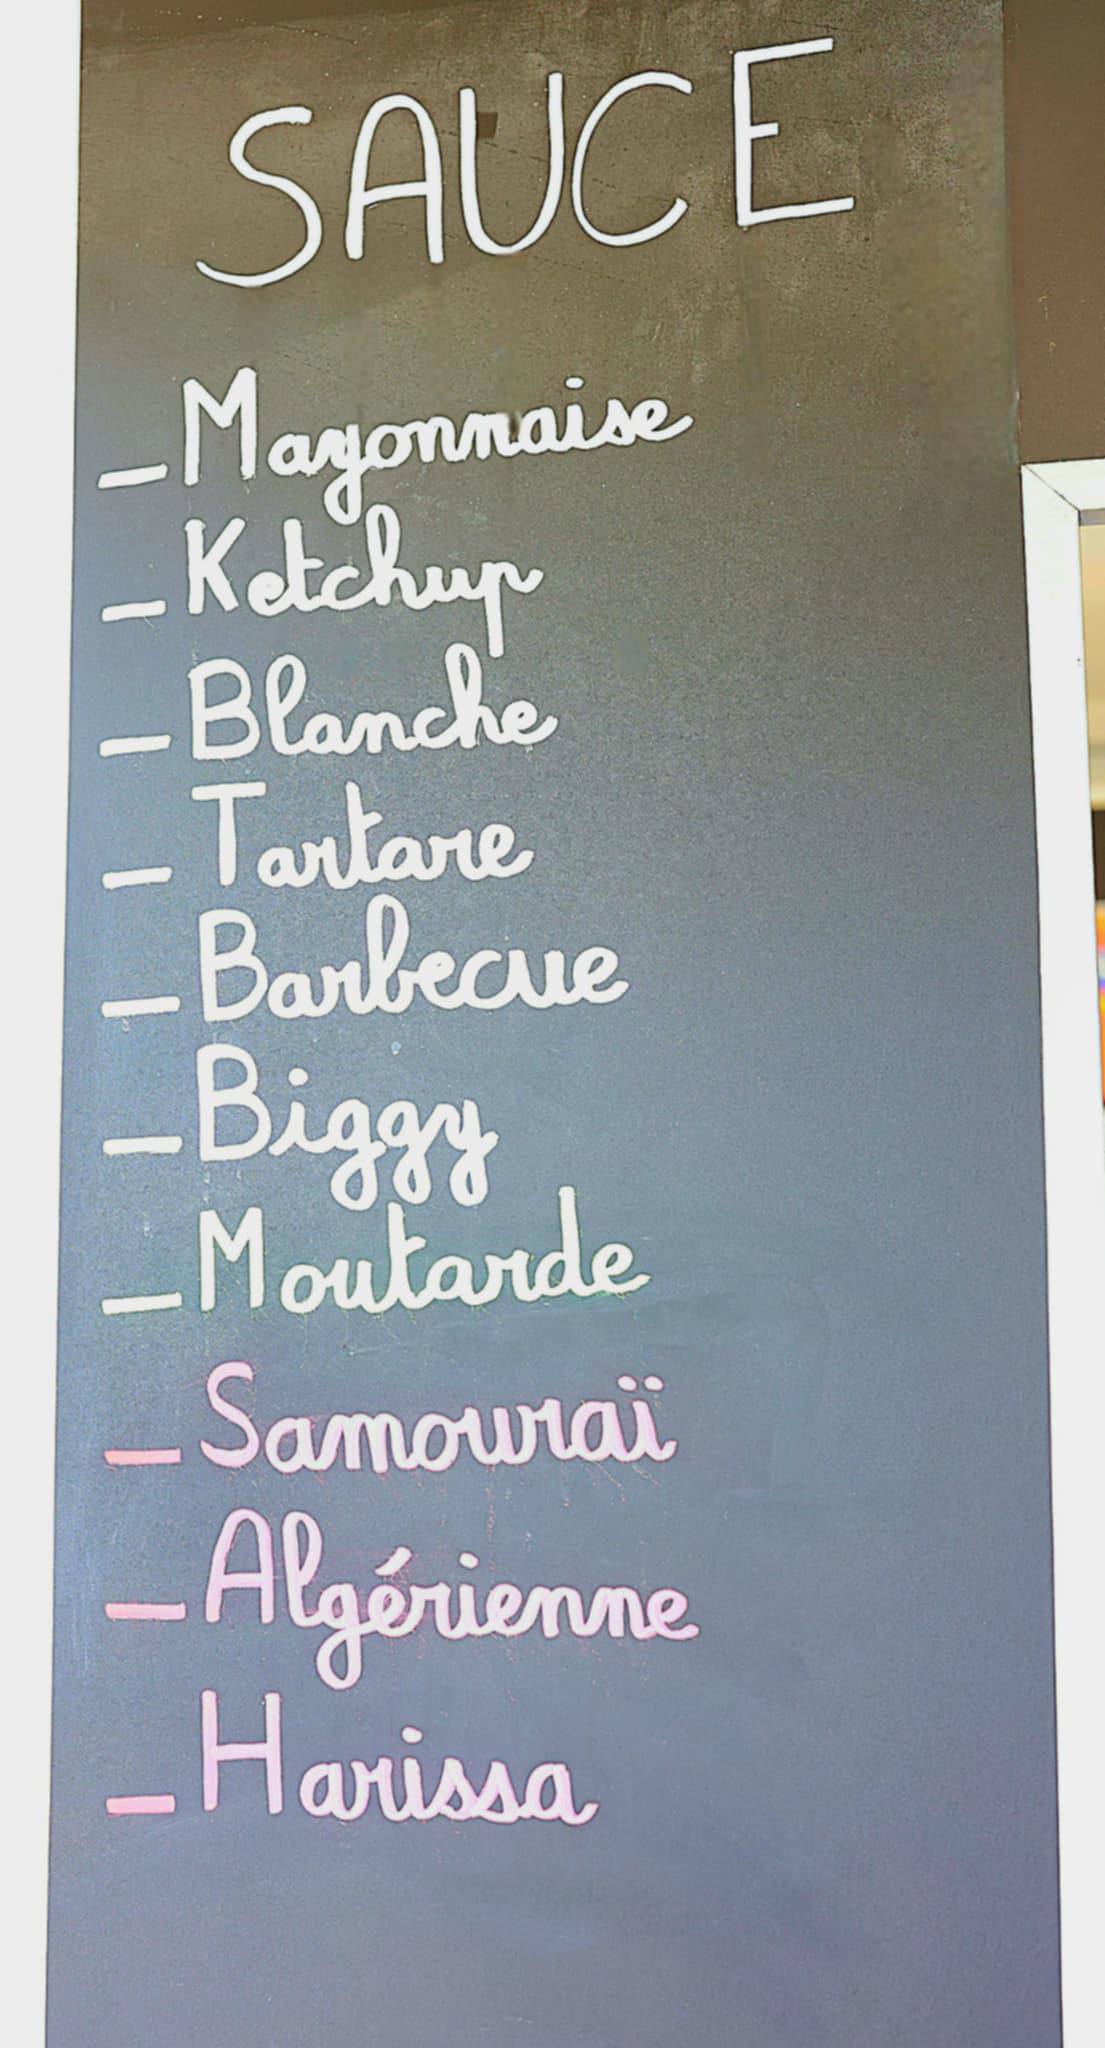 SAUCE
- Mayonnaise
- Ketchup
- Blanche
- Tartare
- Barbecue
- Biggy
- Moutarde
- Samouraï
- Algérienne
- Harissa